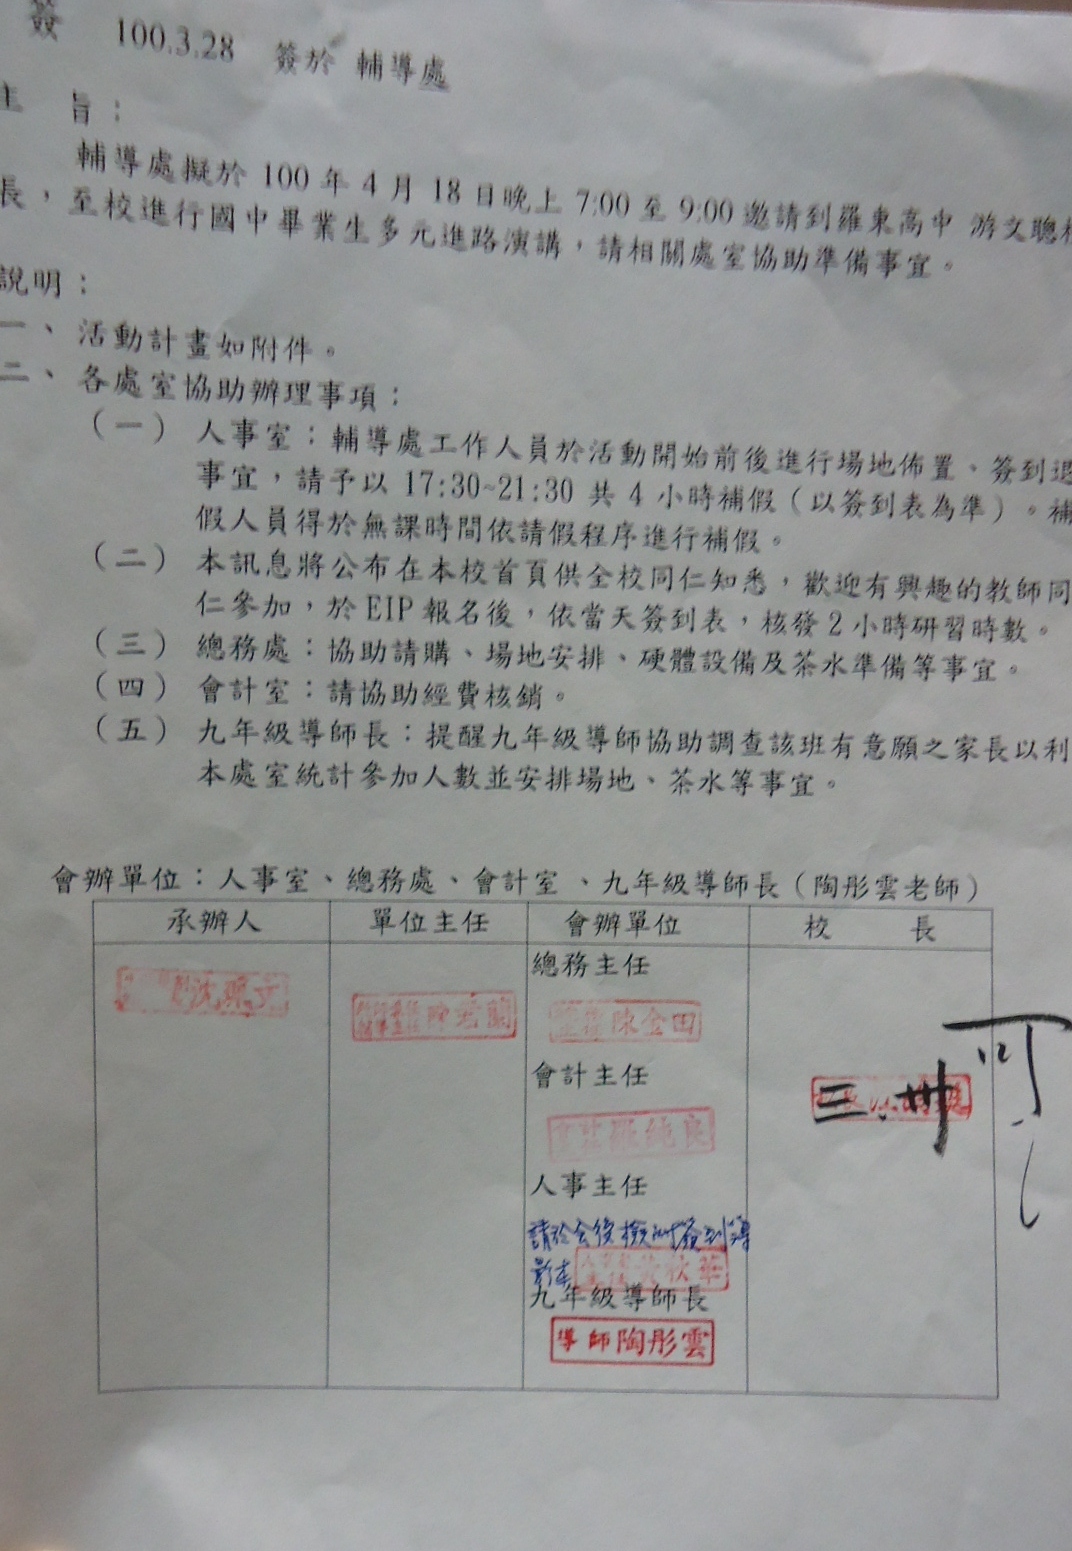 簽 100.3.28 簽於 輔導處
主 旨：
輔導處擬於 100 年 4 月 18 日晚上 7:00 至 9:00 邀請到羅東高中 游文聰校
長，至校進行國中畢業生多元進路演講，請相關處室協助準備事宜。
說明：
一、活動計畫如附件。
二、各處室協助辦理事項：
（一） 人事室：輔導處工作人員於活動開始前後進行場地佈置、簽到退
事宜，請予以 17:30~21:30 共 4 小時補假（以簽到表為準）。補
假人員得於無課時間依請假程序進行補假。
（二） 本訊息將公布在本校首頁供全校同仁知悉，歡迎有興趣的教師同
仁參加，於 EIP 報名後，依當天簽到表，核發 2 小時研習時數。
（三） 總務處：協助請購、場地安排、硬體設備及茶水準備等事宜。
（四） 會計室：請協助經費核銷。
（五） 九年級導師長：提醒九年級導師協助調查該班有意願之家長以利
本處室統計參加人數並安排場地、茶水等事宜。
會辦單位：人事室、總務處、會計室 、九年級導師長（陶彤雲老師）
承辦人 單位主任 會辦單位 校 長
總務主任
陳金田
陳若蘭
會計主任
可
羅純良
人事主任
請於會後檢附簽到簿
影本
黃秋華
九年級導師長
導師陶彤雲